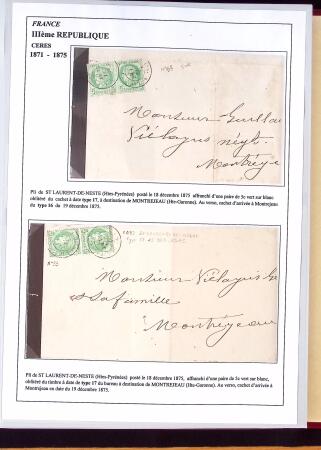 FRANCE
IIIème REPUBLIQUE
CERES
1871 - 1875
Monsieur Guillau
Vielajus négt.
Montréje
Pli de ST LAURENT-DE-NESTE (Htes-Pyrénées) posté le 18 décembre 1875 affranchi d'une paire de 5c vert sur blanc
oblitéré du cachet à date type 17, à destination de MONTREJEAU (Hte-Garonne). Au verso, cachet d'arrivée à Montrejeau
du type 16 du 19 décembre 1875.
Monsieur Vielajus Ge
& Sa famille
Montréjeau
Pli de ST LAURENT-DE-NESTE (Htes-Pyrénées) posté le 18 décembre 1875, affranchi d'une paire de 5c vert sur blanc,
oblitéré du timbre à date de type 17 du bureau à destination de MONTREJEAU (Hte-Garonne). Au verso, cachet d'arrivée à
Montrejeau en date du 19 décembre 1875.